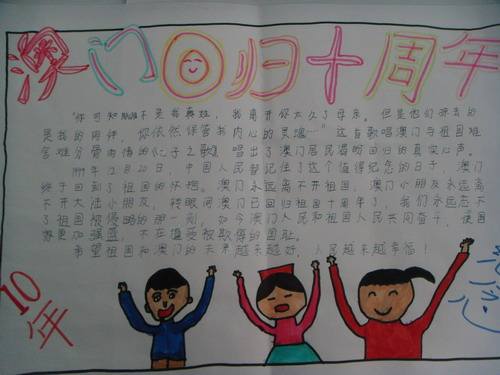 澳门回归十周年
"你可知 不是我真姓，我离开你太久了母亲。但是他们掠去的
是我的肉体，你依然保管我内心的灵魂…"这首歌唱澳门与祖国难
舍难分骨肉情的《七子之歌》唱出了澳门居民渴盼回归的真实心声。
1999年12月20日，中国人民皆记住了这个值得纪念的日子，澳门
终于回到了祖国的怀抱。澳门永远离不开祖国，澳门小朋友永远离
不开大陆小朋友，转眼间澳门已回归祖国十周年了，我们永远忘不
了祖国被侵略的那一刻，如今澳门人民和祖国人民共同奋斗，使国
家更加强盛，不在遭受被欺侮的国耻。
希望祖国和澳门的未来越来越好，人民越来越幸福！
10年